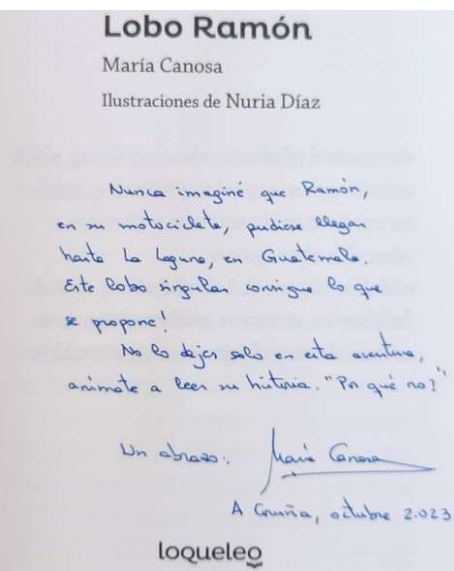 Lobo Ramón
María Canosa
Ilustraciones de Nuria Díaz
Nunca imaginé que Ramón,
en su motocicleta, pudiese llegar
hasta La Laguna, en Guatemala.
Este lobo singular consigue lo que
se propone!
No lo dejes solo en esta aventura,
anímate a leer su historia. "Por qué no?"
Un abrazo: María Canosa
A Coruña, octubre 2.023
loqueleo